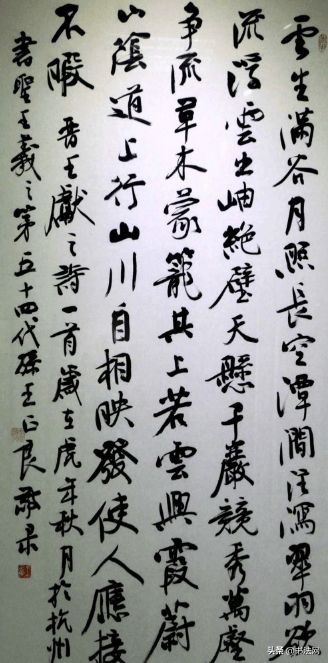 雲生滿谷月照長空潭澗注瀉翠羽欲
流浮雲出岫絶壁天懸千巖競秀萬壑
争流草木蒙籠其上若雲興霞蔚
山陰道上行山川自相映發使人應接
不暇 晋王獻之詩一首歲在虎年秋月於杭州
書聖王羲之第五十四代孫王正良敬录
头条 @书法网